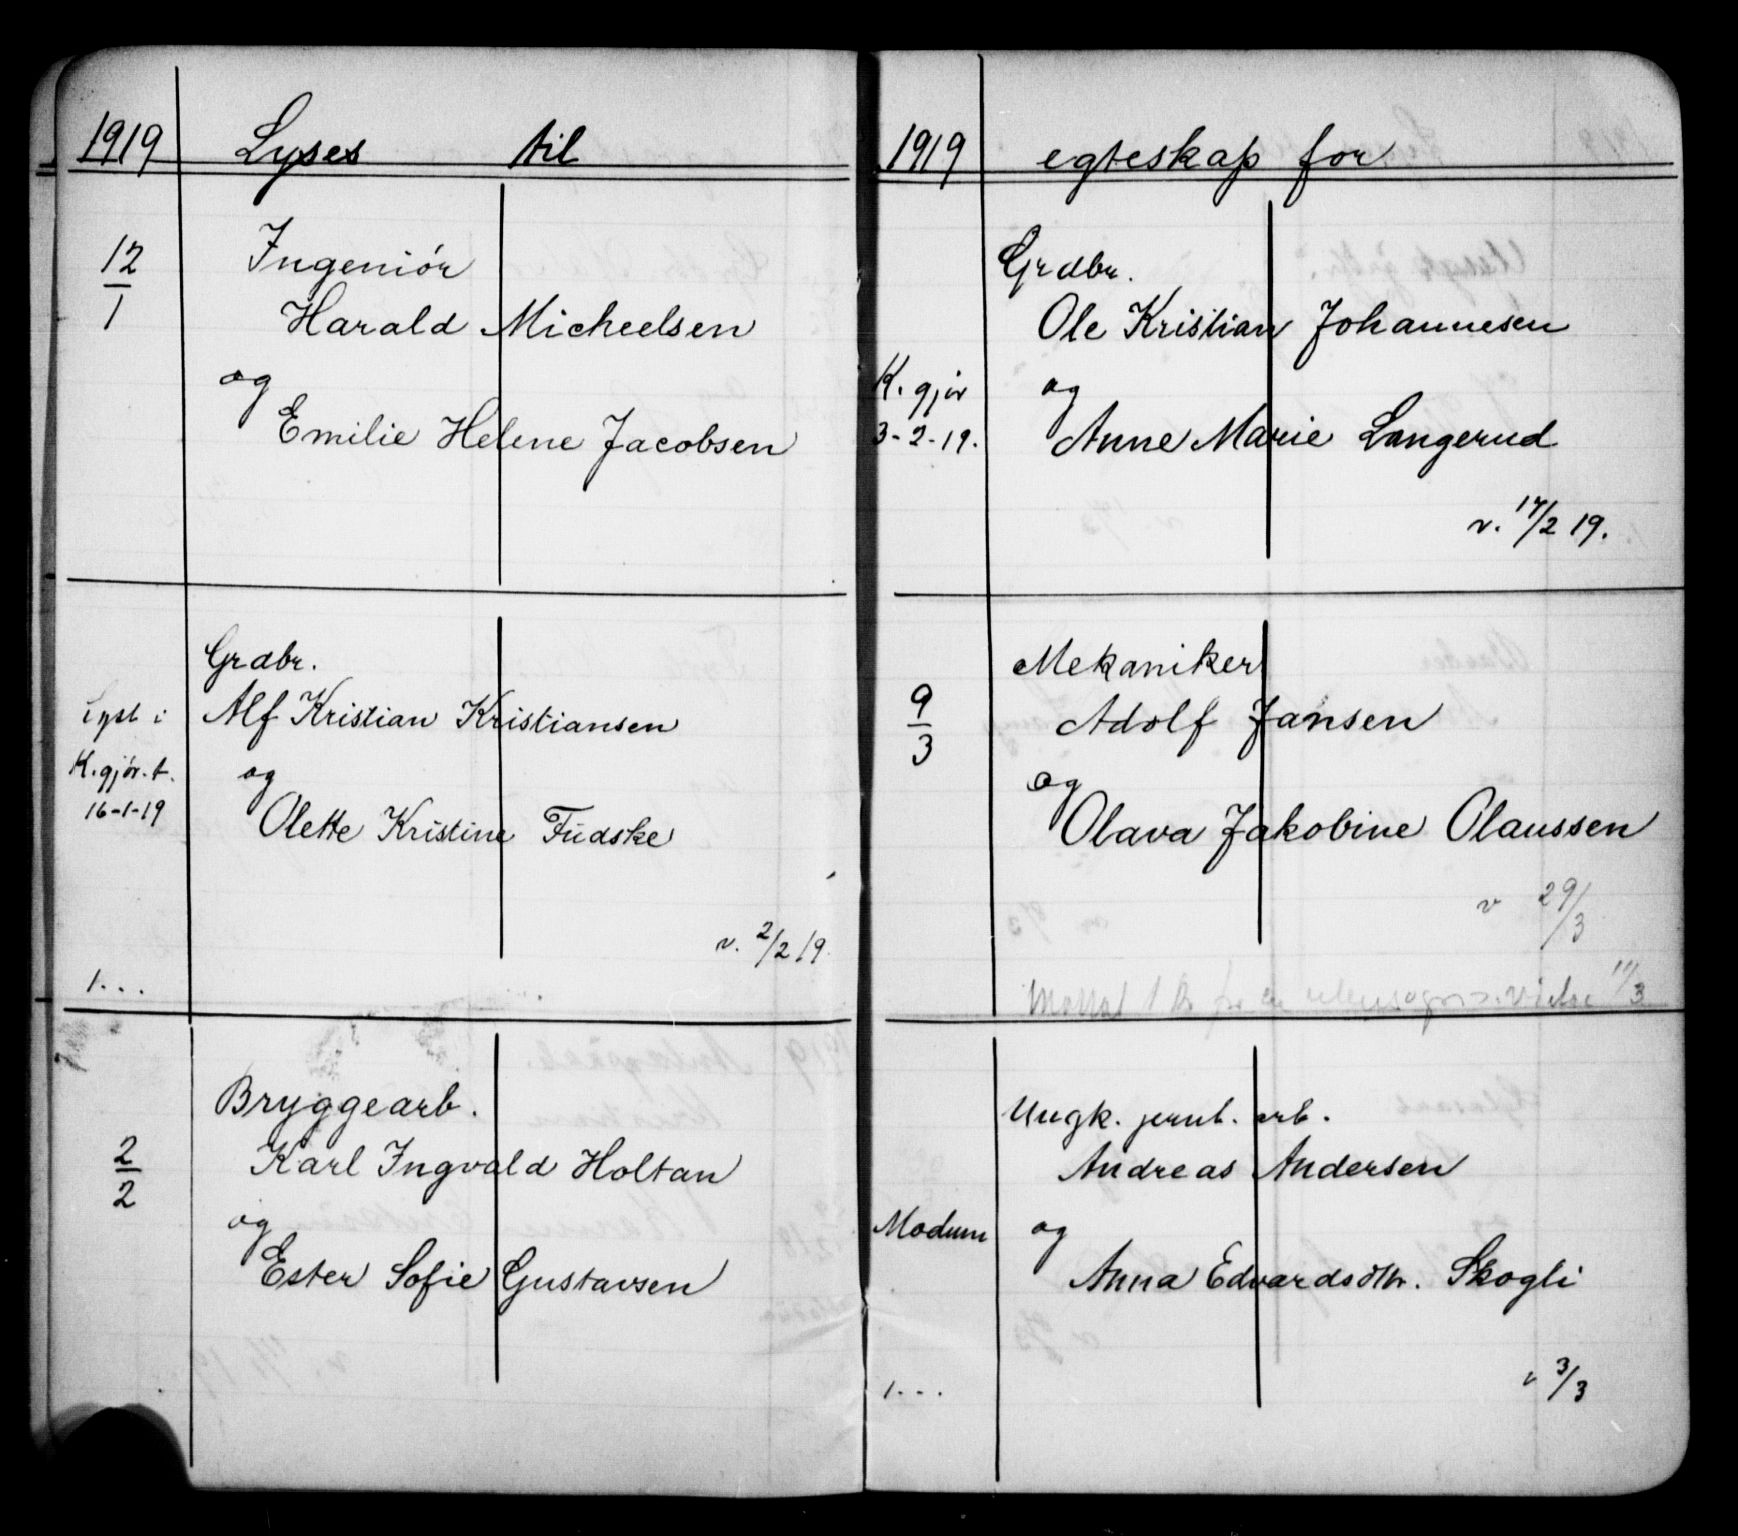 1919 Lyses til
12/1
Ingeniór
Harald Micheelsen
og
Emilie Helene Jacobsen
Grdbr.
Lyst i
Alf Kristian Kristiansen
K.gjör.t.
og
16-1-19
Olette Kristine Fudske
v. 2/2 19.
1...
Bryggearb.
2/2
Karl Ingvald Holtan
og
Ester Sofie Gustavsen
1919 egteskap for
Grdbr.
Ole Kristian Johannesen
K. gjör
og
3-2-19.
Anne Marie Langerud
v. 17/2 19.
Mekaniker
9/3
Adolf Jansen
og
Olava Jakobine Olaussen
v 29/3
1 Kr for vielse 11/3
Ungk. jernb. arb.
Andreas Andersen
Modum
og
Anna Edvardsdtr. Skogli
1...
v 3/3